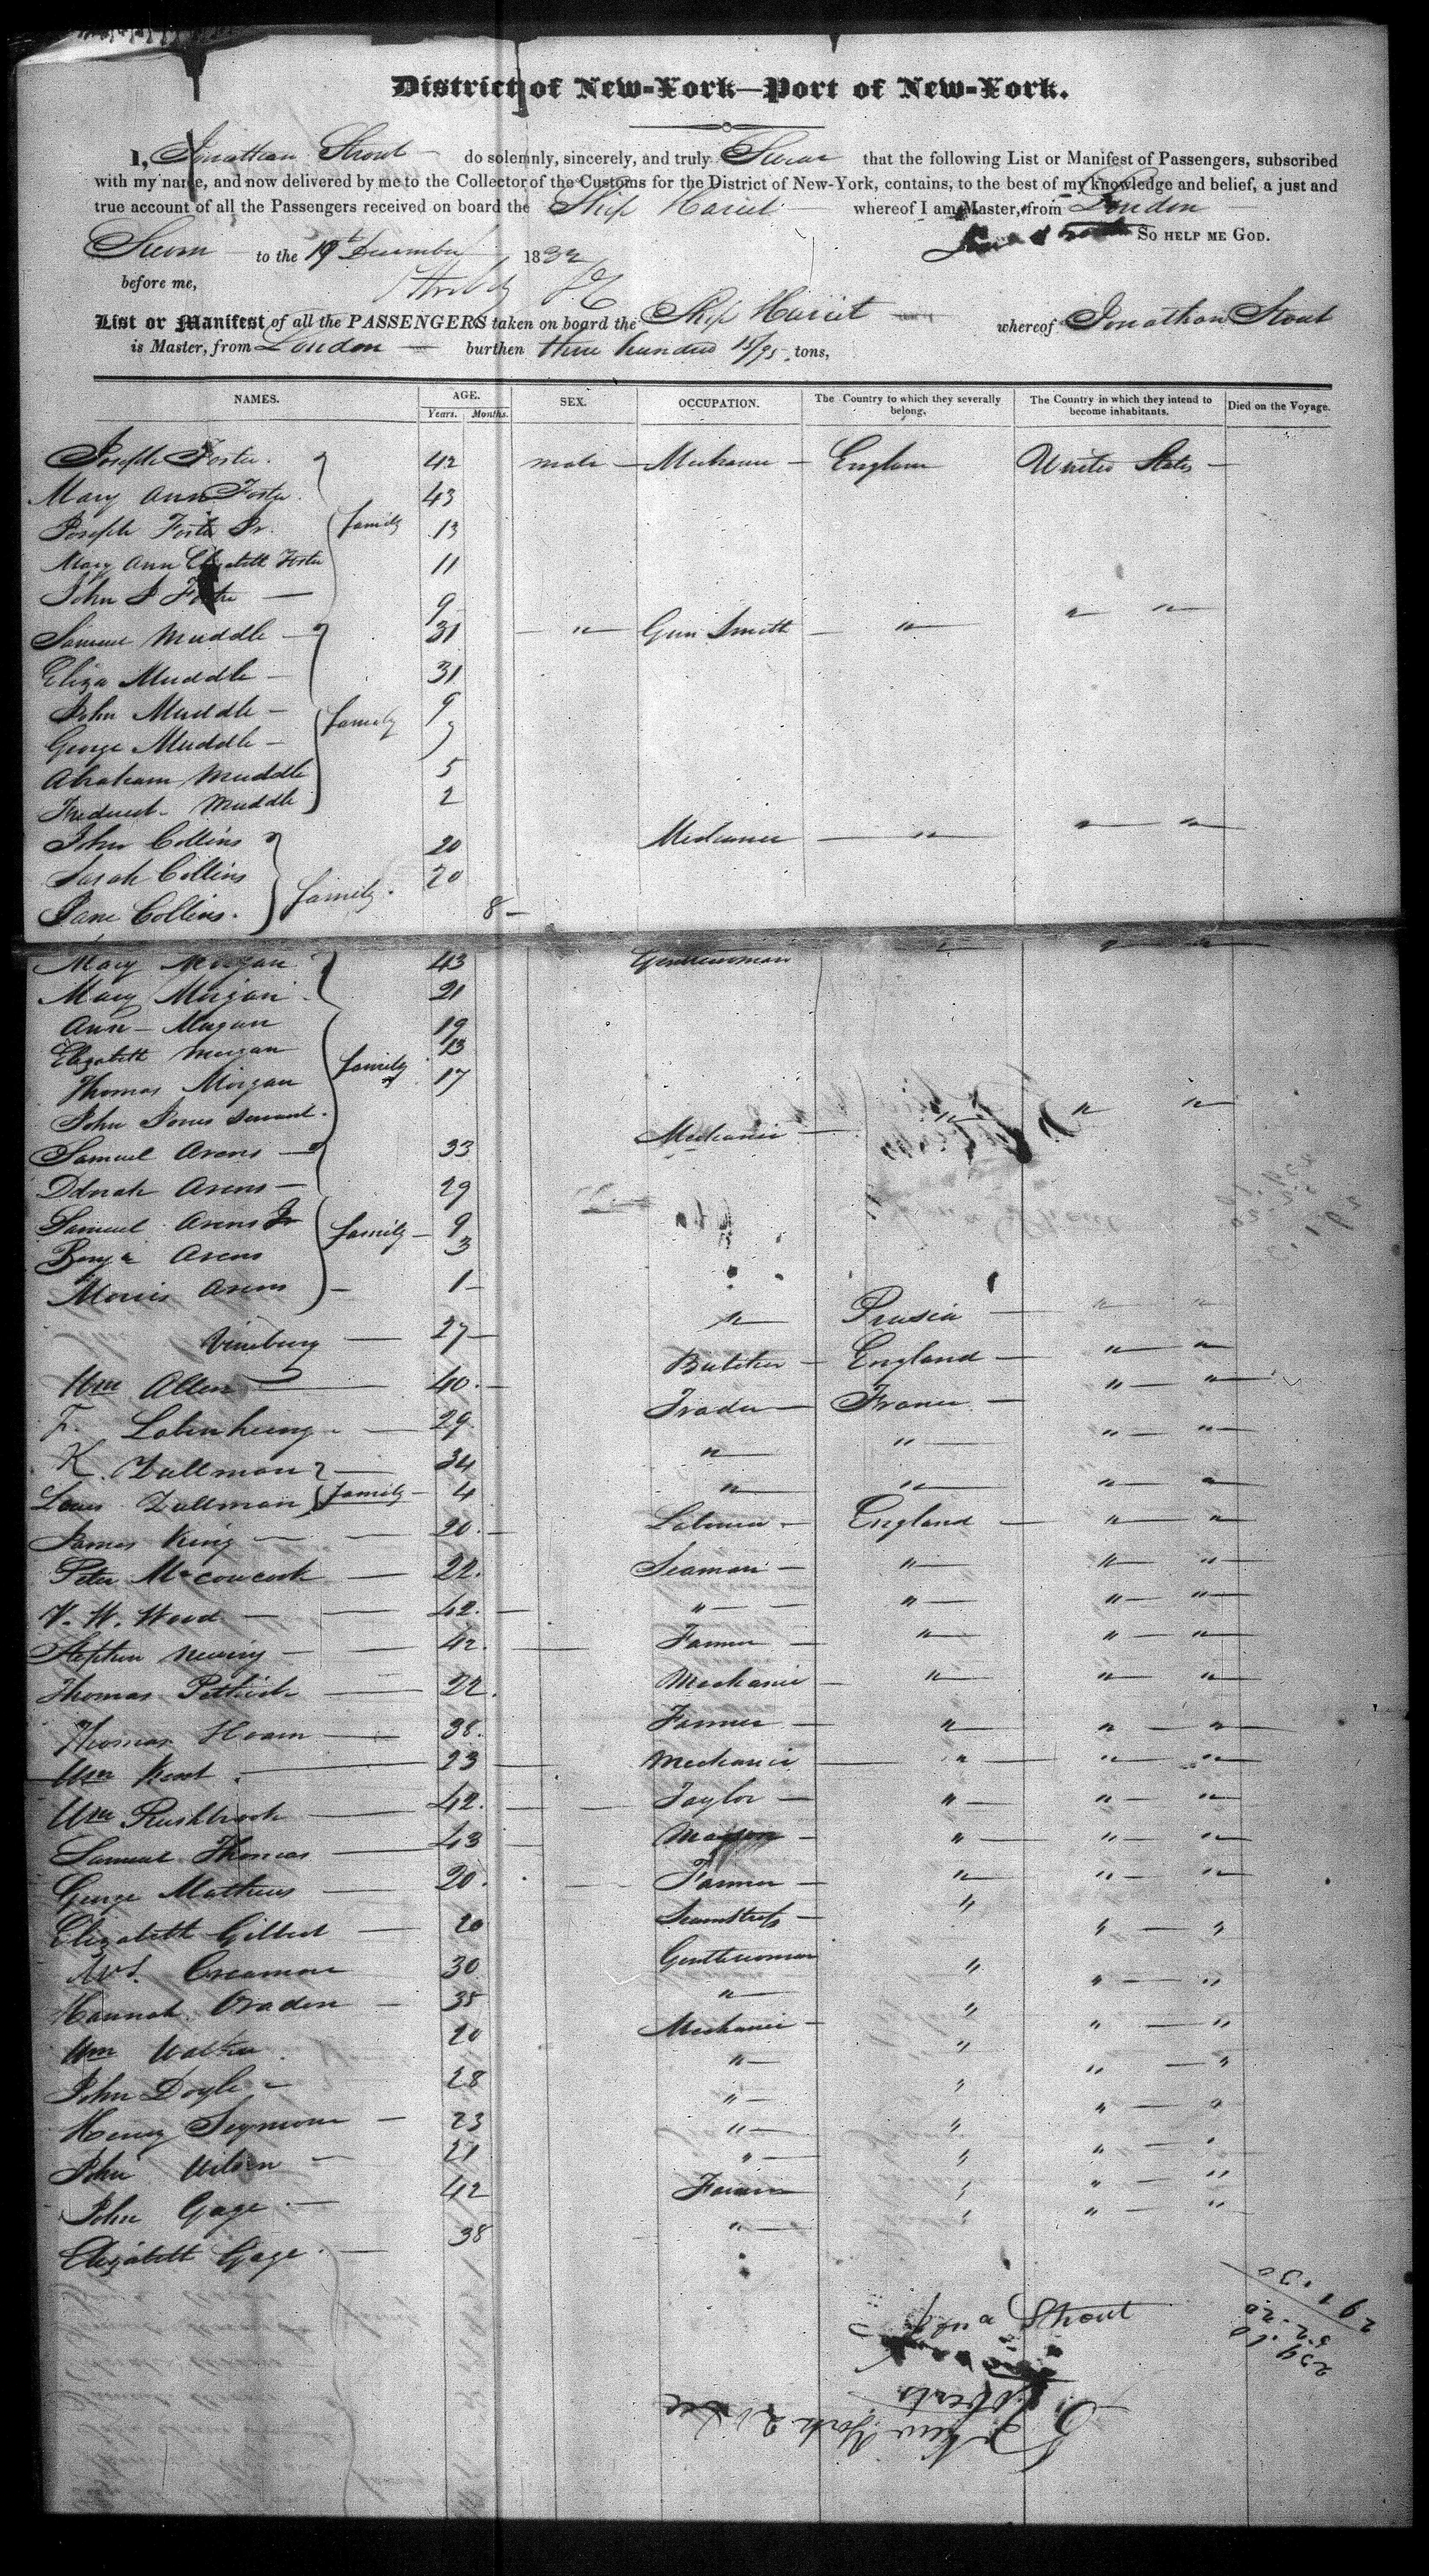 District of New-York—Port of New-York.
I, Jonathan Strout do solemnly, sincerely, and truly Swear that the following List or Manifest of Passengers, subscribed
with my name, and now delivered by me to the Collector of the Customs for the District of New-York, contains, to the best of my knowledge and belief, a just and
true account of all the Passengers received on board the Ship Hariet whereof I am Master, from London
Sworn to the 19th December 1832 So HELP ME GOD.
before me,
List or Manifest of all the PASSENGERS taken on board the Ship Hariet whereof Jonathan Stout
is Master, from London burthen three hundred 15/95 tons,
NAMES. AGE. Years. Months. SEX. OCCUPATION. The Country to which they severally belong. The Country in which they intend to become inhabitants. Died on the Voyage.
Joseph Foster 42 male Mechanic England United States
Mary Ann Foster 43
Joseph Foster Jr. family 13
Mary Ann Elizabeth Foster 11
John J Foster 9
Samuel Muddle 31 " Gun Smith " " "
Eliza Muddle 31
John Muddle family 9
George Muddle
Abraham Muddle 5
Frederick Muddle 2
John Collins 20 Mechanic " " "
Sarah Collins 20
Jane Collins family 8
Mary Morgan 43 Gentlewoman " " "
Mary Morgan 21
Ann Morgan 19
Elizabeth Morgan family 13
Thomas Morgan 17
John Jones servant
Samuel Arons 33 Mechanic " " "
Arons 29
Samuel Arons Jr family 9
Benj'n Arons 3
Morris Arons 1
27 " Prusia " "
Wm Allen 40 Butcher England " "
F. 29 Trader France " "
K. Dullman 34 " " " "
Louis Dullman family 4 " " " "
James King 20 Laborer England " "
Peter 22 Seaman " " "
V. W. Wood 42 " " " "
Stephen 42 Farmer " " "
Thomas 22 Mechanic " " "
Thomas Hoam 38 Farmer " " "
Wm Kent 23 Mechanic " " "
Wm Rushbrook 42 Taylor " " "
Samuel Thomas 43 Mason " " "
George Mathews 20 Farmer " " "
Elizabeth Gilbert 20 Seamstress " " "
Mrs. Creamore 30 Gentlewoman " " "
Hannah 35 " " " "
Wm Walker 20 Mechanic " " "
John Doyle 28 " " " "
Henry Seymour 23 " " " "
John Wilson 21 " " " "
John Gage 42 Farmer " " "
Elizabeth Gage 38 " " " "
Jona Strout
New York